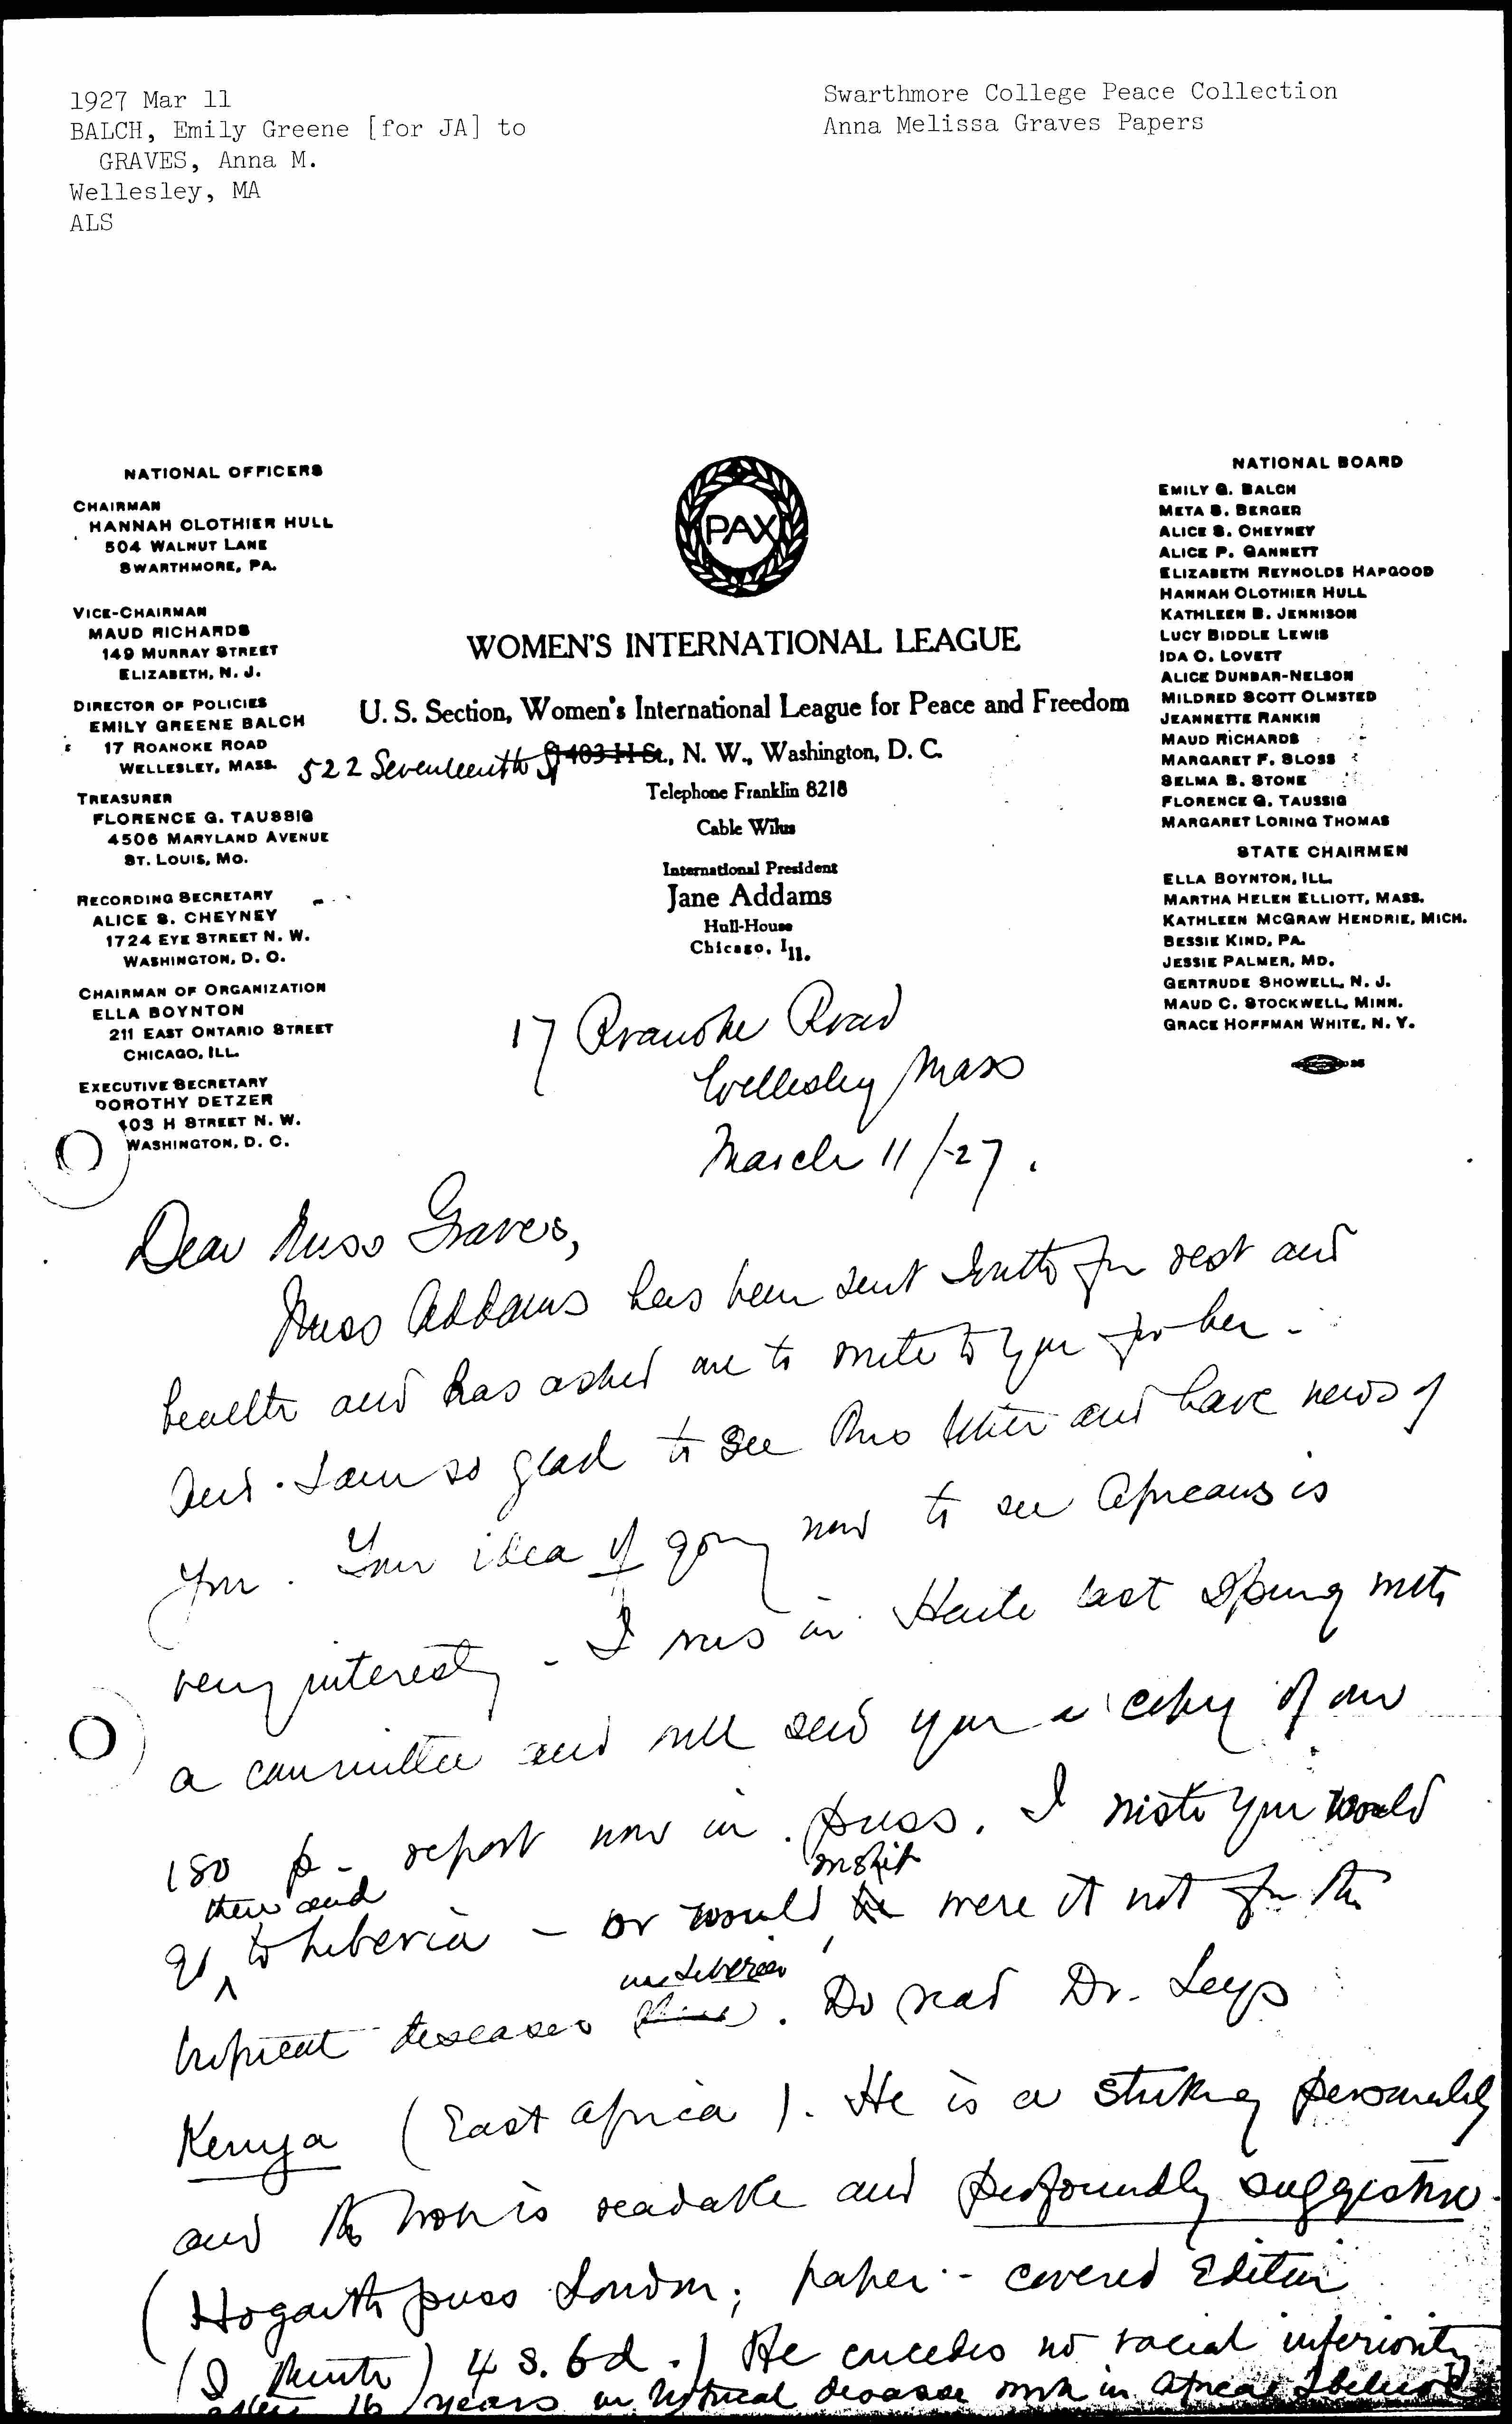 1927 Mar 11
BALCH, Emily Greene [for JA] to
GRAVES, Anna M.
Wellesley, MA
ALS
Swarthmore College Peace Collection
Anna Melissa Graves Papers
NATIONAL OFFICERS
CHAIRMAN
HANNAH CLOTHIER HULL
504 WALNUT LANE
SWARTHMORE, PA.
VICE-CHAIRMAN
MAUD RICHARDS
149 MURRAY STREET
ELIZABETH, N. J.
DIRECTOR OF POLICIES
EMILY GREENE BALCH
17 ROANOKE ROAD
WELLESLEY, MASS.
TREASURER
FLORENCE G. TAUSSIG
4506 MARYLAND AVENUE
ST. LOUIS, MO.
RECORDING SECRETARY
ALICE S. CHEYNEY
1724 EYE STREET N. W.
WASHINGTON, D. C.
CHAIRMAN OF ORGANIZATION
ELLA BOYNTON
211 EAST ONTARIO STREET
CHICAGO, ILL.
EXECUTIVE SECRETARY
DOROTHY DETZER
403 H STREET N. W.
WASHINGTON, D. C.
PAX
WOMEN'S INTERNATIONAL LEAGUE
U. S. Section, Women's International League for Peace and Freedom
522 Seventeenth St 403 H St., N. W., Washington, D. C.
Telephone Franklin 8218
Cable Wilus
International President
Jane Addams
Hull-House
Chicago, Ill.
NATIONAL BOARD
EMILY G. BALCH
META S. BERGER
ALICE S. CHEYNEY
ALICE P. GANNETT
ELIZABETH REYNOLDS HAPGOOD
HANNAH CLOTHIER HULL
KATHLEEN B. JENNISON
LUCY BIDDLE LEWIS
IDA C. LOVETT
ALICE DUNBAR-NELSON
MILDRED SCOTT OLMSTED
JEANNETTE RANKIN
MAUD RICHARDS
MARGARET F. SLOSS
SELMA B. STONE
FLORENCE G. TAUSSIG
MARGARET LORING THOMAS
STATE CHAIRMEN
ELLA BOYNTON, ILL.
MARTHA HELEN ELLIOTT, MASS.
KATHLEEN MCGRAW HENDRIE, MICH.
BESSIE KIND, PA.
JESSIE PALMER, MD.
GERTRUDE SHOWELL, N. J.
MAUD C. STOCKWELL, MINN.
GRACE HOFFMAN WHITE, N. Y.
17 Roanoke Road
Wellesley Mass
March 11/-27.
Dear Miss Graves,
Miss Addams has been sent South for rest and
health and has asked me to write to you for her -
And. I am so glad to see this letter and have news of
you. Your idea of going now to see Africans is
very interesting - I was in Haiti last Spring with
a committee and will send you a copy of our
180 p - report now in press. I wish you would
then and
go to Liberia - or would wish it were it not for the
in Liberia
tropical diseases. Do read Dr. Leys
Kenya (East Africa). He is a striking personality
and the book is readable and profoundly suggestive.
(Hogarth press London; paper - covered Edition
(I think) 4 s. 6d.) He concedes no racial inferiority
after 16 years in tropical disease work in Africa I believe